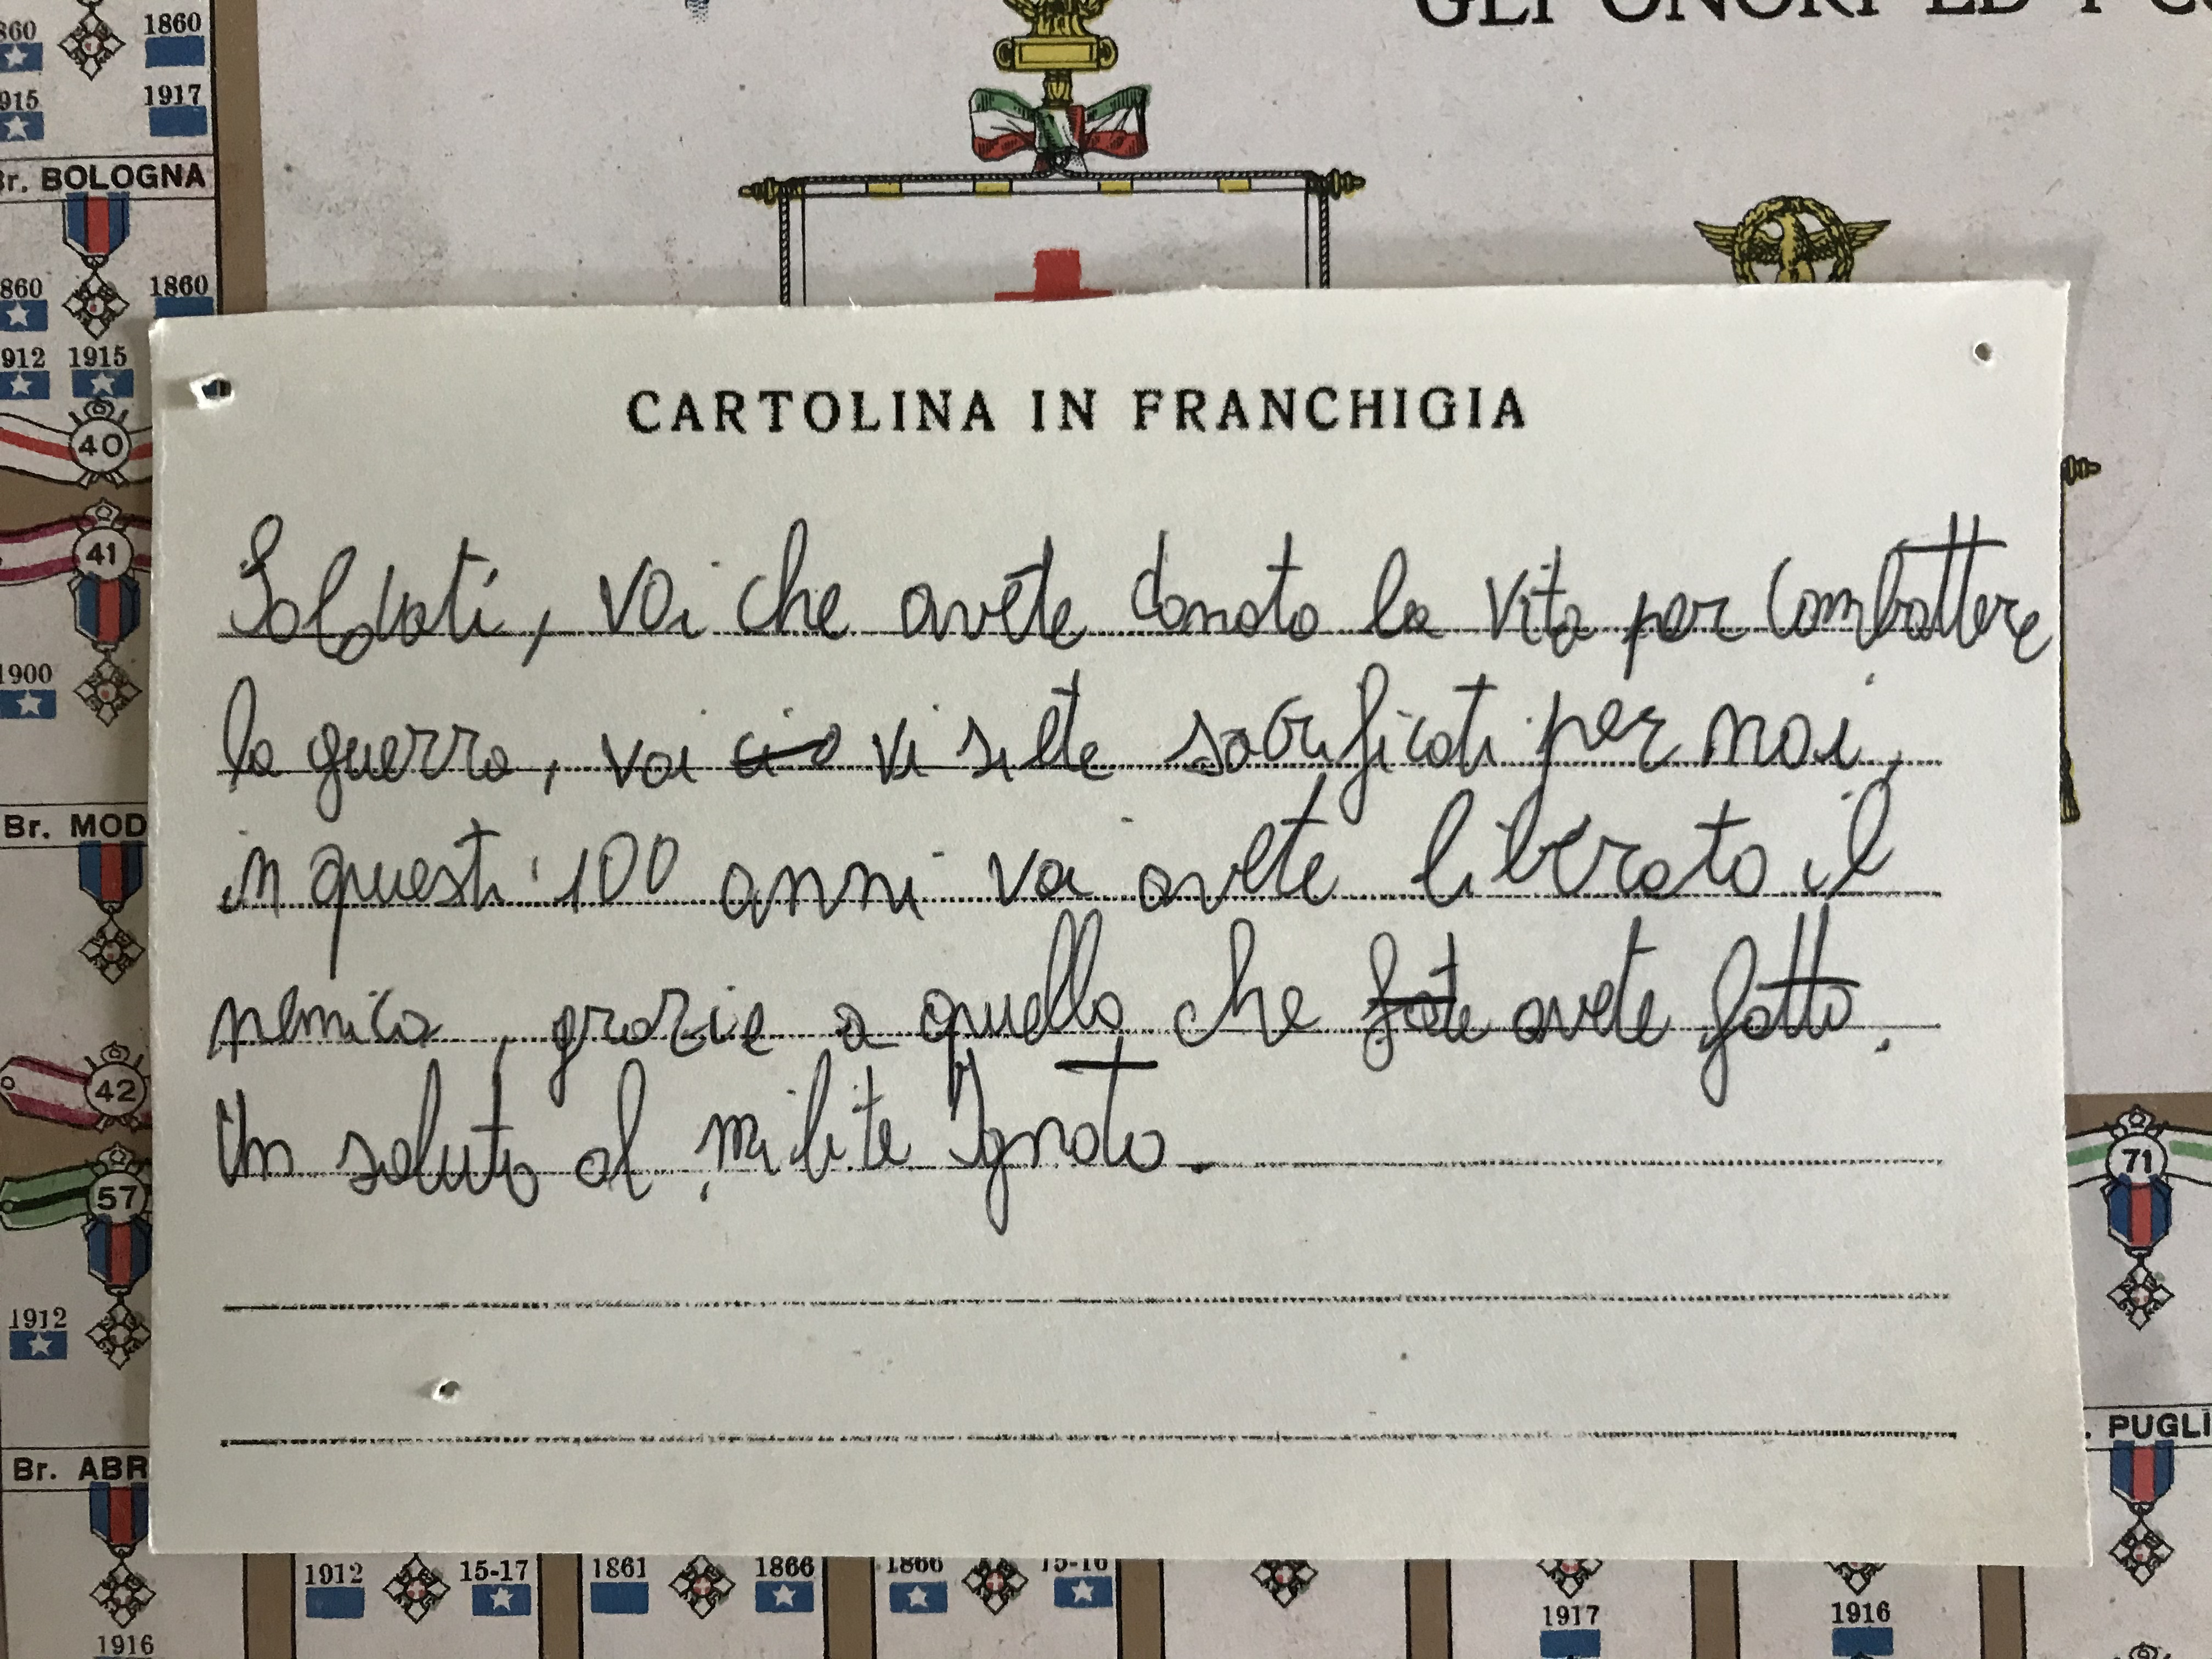 GLI ONORI ED I
860 1860
915 1917
Br. BOLOGNA
860 1860
912 1915
40
41
1900
Br. MOD
42
57
1912
Br. ABR
1916
CARTOLINA IN FRANCHIGIA
Soldati, voi che avete donato la vita per combattere
la guerra, voi ci vi siete sacrificati per noi,
in questi 100 anni voi avete liberato il
nemico, grazie a quello che fate avete fatto.
Un saluto al milite Ignoto.
71
PUGLI
1912 15-17 1861 1866 1866 15-16
1917 1916